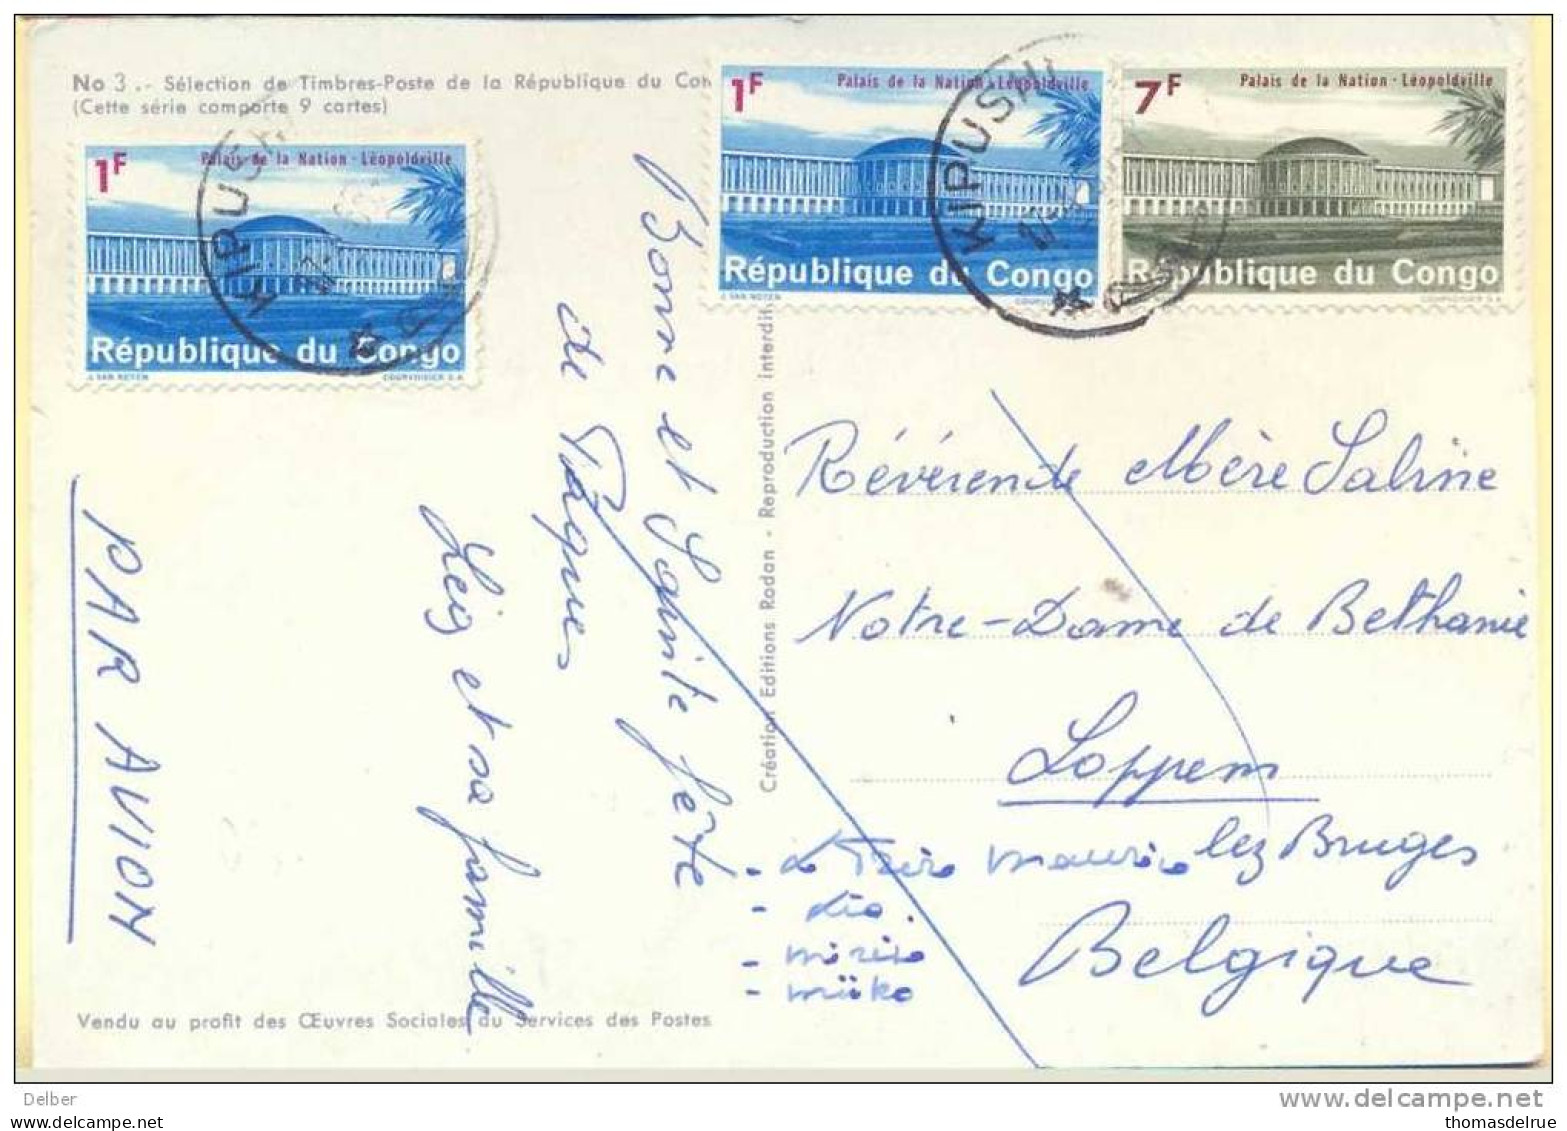 No 3.- Sélection de Timbres-Poste de la République du Con
(Cette série comporte 9 cartes)
1F Palais de la Nation - Léopoldville
République du Congo
J. VAN NOTEN COURVOISIER S.A.
KIPUSHI
1F Palais de la Nation - Léopoldville
République du Congo
J. VAN NOTEN
KIPUSHI
7F Palais de la Nation - Léopoldville
République du Congo
COURVOISIER S.A.
Bonne et Sainte fête
de Pâques
Léiz et sa famille
PAR AVION
Création Editions Rodan - Reproduction interdit
Révérende Mère Sabine
Notre-Dame de Bethanie
Loppem
lez Bruges
Belgique
- Maurice
- Léo.
- miriio
- müko
Vendu au profit des Œuvres Sociales du Services des Postes
Delber
delcampe.net
thomasdelrue